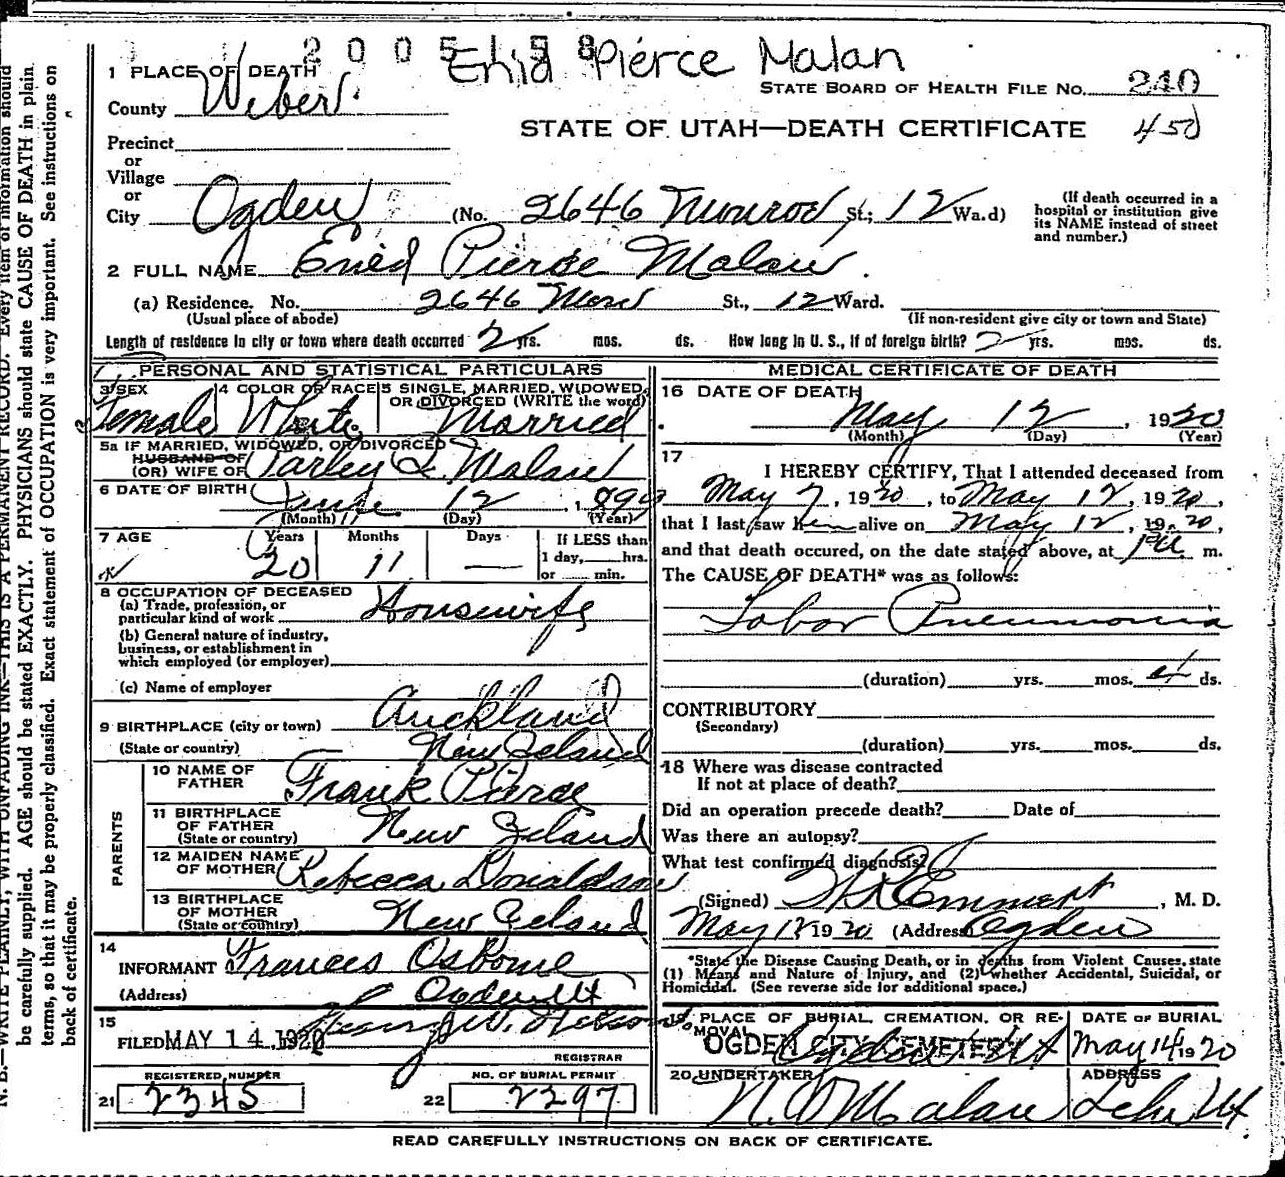 2005158
Enid Pierce Malan
1 PLACE OF DEATH
STATE BOARD OF HEALTH FILE NO. 240
County Weber
STATE OF UTAH—DEATH CERTIFICATE 450
Precinct
or
Village
or
City Ogden (No. 2646 Monroe St.; 12 Wa.d)
(If death occurred in a hospital or institution give its NAME instead of street and number.)
2 FULL NAME Enid Pierce Malan.
(a) Residence. No. 2646 Monroe St., 12 Ward.
(Usual place of abode) (If non-resident give city or town and State)
Length of residence in city or town where death occurred 2 yrs. mos. ds. How long in U. S., if of foreign birth? 2 yrs. mos. ds.
PERSONAL AND STATISTICAL PARTICULARS
3 SEX 4 COLOR OR RACE 5 SINGLE, MARRIED, WIDOWED, OR DIVORCED (WRITE the word)
Female White Married
5a IF MARRIED, WIDOWED, OR DIVORCED
HUSBAND OF
(OR) WIFE OF Parley L. Malan
6 DATE OF BIRTH June 12, 1899
(Month) (Day) (Year)
7 AGE Years Months Days If LESS than
20 11 — 1 day, hrs.
or min.
8 OCCUPATION OF DECEASED
(a) Trade, profession, or
particular kind of work Housewife
(b) General nature of industry,
business, or establishment in
which employed (or employer)
(c) Name of employer
9 BIRTHPLACE (city or town) Auckland
(State or country) New Zeland
PARENTS
10 NAME OF
FATHER Frank Pierce
11 BIRTHPLACE
OF FATHER
(State or country) New Zeland
12 MAIDEN NAME
OF MOTHER Rebecca Donaldson
13 BIRTHPLACE
OF MOTHER
(State or country) New Zeland
14
INFORMANT Frances Osborne
(Address) Ogden Ut
15
FILED MAY 14 1920
REGISTRAR
REGISTERED NUMBER NO. OF BURIAL PERMIT
21 2345 22 2297
MEDICAL CERTIFICATE OF DEATH
16 DATE OF DEATH
May 12, 1920
(Month) (Day) (Year)
17
I HEREBY CERTIFY, That I attended deceased from
May 7, 1920, to May 12, 1920,
that I last saw her alive on May 12, 1920,
and that death occured, on the date stated above, at m.
The CAUSE OF DEATH* was as follows:
Lobar Pneumonia
(duration) yrs. mos. ds.
CONTRIBUTORY
(Secondary)
(duration) yrs. mos. ds.
18 Where was disease contracted
If not at place of death?
Did an operation precede death? Date of
Was there an autopsy?
What test confirmed diagnosis?
(Signed) Emmett, M. D.
May 12 1920 (Address Ogden
*State the Disease Causing Death, or in deaths from Violent Causes, state
(1) Means and Nature of Injury, and (2) whether Accidental, Suicidal, or
Homicidal. (See reverse side for additional space.)
19 PLACE OF BURIAL, CREMATION, OR RE- DATE OF BURIAL
MOVAL
OGDEN CITY CEMETERY May 14 1920
20 UNDERTAKER ADDRESS
N. O. Malan Lehi Ut
READ CAREFULLY INSTRUCTIONS ON BACK OF CERTIFICATE.
N. B.—WRITE PLAINLY, WITH UNFADING INK—THIS IS A PERMANENT RECORD. Every item of information should
be carefully supplied. AGE should be stated EXACTLY. PHYSICIANS should state CAUSE OF DEATH in plain
terms, so that it may be properly classified. Exact statement of OCCUPATION is very important. See instructions on
back of certificate.